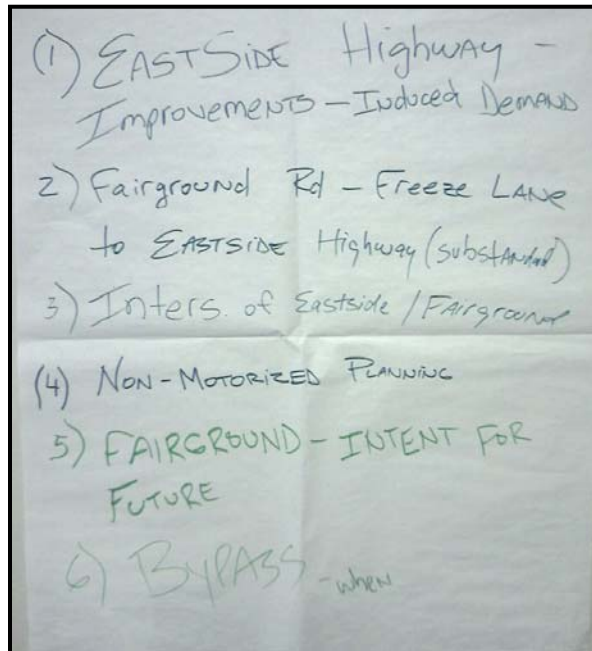 (1) EASTSIDE Highway -
Improvements - Induced Demand
2) Fairground Rd - Freeze LANE
to EASTSIDE Highway (substandard)
3) Inters. of Eastside / FAirground
(4) NON-MOTORIZED PLANNING
5) FAIRGROUND - INTENT FOR
FUTURE
6) BYPASS - when